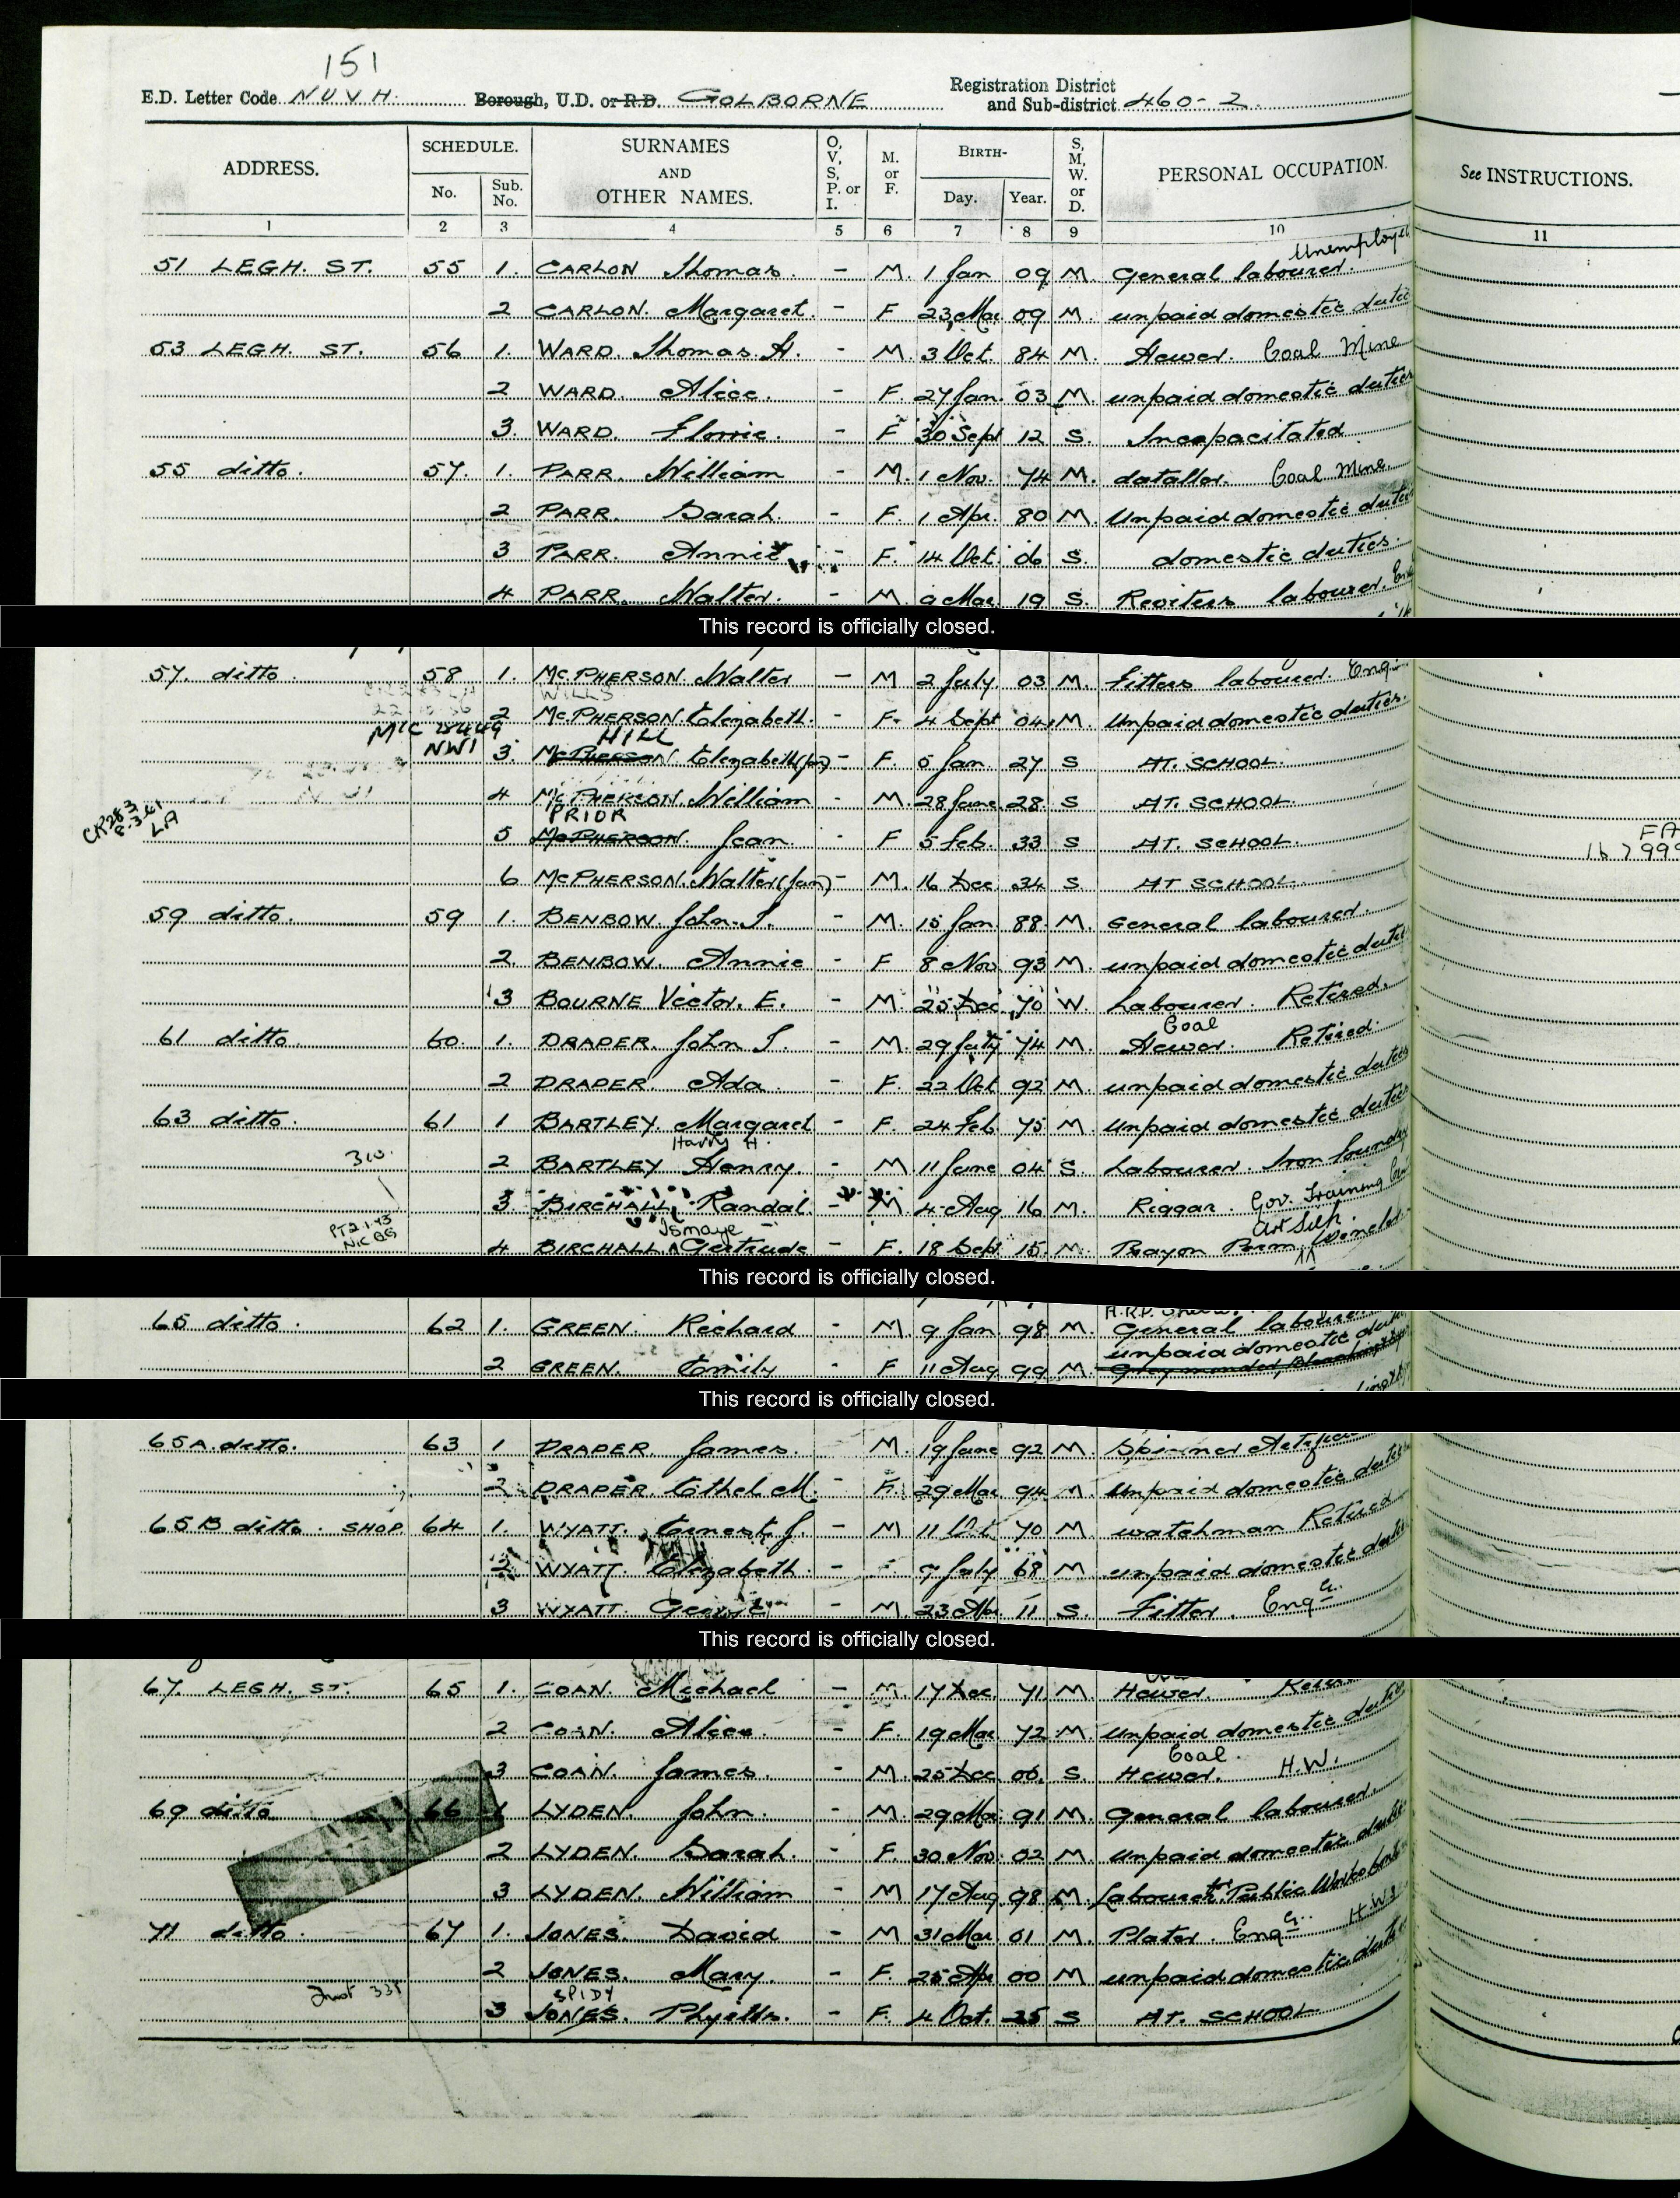 151
E.D. Letter Code NUVH. Borough, U.D. or R.D. GOLBORNE Registration District and Sub-district 460-2
ADDRESS. SCHEDULE. SURNAMES AND OTHER NAMES. O, V, S, P. or I. M. or F. BIRTH- S, M, W. or D. PERSONAL OCCUPATION. See INSTRUCTIONS.
No. Sub. No. Day. Year.
1 2 3 4 5 6 7 8 9 10 11
51 LEGH. ST. 55 1. CARLON Thomas. - M. 1 Jan 09 M. General labourer. Unemployed
2 CARLON. Margaret. - F 23 Mar 09 M. unpaid domestic duties
53 LEGH. ST. 56 1. WARD. Thomas. H. - M. 3 Oct 84 M. Hewer. Coal Mine
2 WARD. Alice. - F. 27 Jan. 03 M. unpaid domestic duties
3. WARD. Florrie. - F 30 Sept 12 S. Incapacitated
55 ditto. 57. 1. PARR. William - M. 1 Nov. 74 M. datallor. Coal Mine.
2 PARR. Sarah. - F. 1 Apr. 80 M Unpaid domestic duties
3 PARR. Annie - F. 14 Oct. 06 S. domestic duties.
4 PARR. Walter. - M. 9 Mar 19 S. Reviters labourer.
This record is officially closed.
57. ditto. 58 1. McPHERSON. Walter - M 2 July. 03 M. Fitters labourer. Eng.
WILLS
2 McPHERSON. Elizabeth. - F. 4 Sept 04 M. Unpaid domestic duties.
NW1 HILL
3. McPHERSON. Elizabeth (jun) - F. 5 Jan. 27 S AT. SCHOOL.
4 McPHERSON. William - M. 28 June 28 S AT. SCHOOL.
CR283 8.3.61 LA PRIOR
5 McPHERSON. Jean - F 5 Feb. 33 S AT. SCHOOL. FA
6 McPHERSON. Walter (jun) - M. 16 Dec 34 S. AT SCHOOL.
59 ditto. 59 1. BENBOW. John. T. - M. 15 Jan. 88. M. General labourer.
2. BENBOW. Annie - F 8 Nov 93 M. unpaid domestic duties
3 BOURNE Victor. E. - M. 25 Dec 70 W. Labourer. Retired.
61 ditto. 60. 1. DRAPER. John T. - M. 29 July 74 M. Coal Hewer. Retired.
2 DRAPER Ada - F. 22 Oct 92 M. unpaid domestic duties
63 ditto. 61 1 BARTLEY. Margaret - F. 24 Feb. 75 M. Unpaid domestic duties
Harry H.
2 BARTLEY Henry. - M. 11 June 04 S. Labourer. Iron foundry
3 BIRCHALL. Randal. - M 4 Aug 16 M. Riggar. Gov. Training
Ismaye
4 BIRCHALL. Gertrude - F. 18 Sept. 15. M. Rayon Art Silk
This record is officially closed.
65 ditto. 62 1. GREEN. Richard - M. 9 Jan 98 M. General labourer
2 GREEN. Emily - F 11 Aug 99 M. unpaid domestic duties
This record is officially closed.
65A. ditto. 63 1 DRAPER James. M. 19 June 92 M. Spinner
2 DRAPER. Ethel M. - F. 29 Mar 94 M. Unpaid domestic duties
65B ditto. SHOP 64 1. WYATT. Ernest J. - M 11 Oct 70 M watchman Retired
2 WYATT. Elizabeth. - 9 July 68 M unpaid domestic duties
3 WYATT. George - M. 23 Apr 11 S. Fitter. Engr.
This record is officially closed.
67. LEGH. ST. 65 1. COAN. Michael - M. 17 Dec. 71 M. Hewer.
2 COAN. Alice. - F. 19 Mar 72 M. Unpaid domestic duties
3 COAN. James. - M. 25 Dec 06. S. Coal. Hewer. H.W.
69 ditto 66 1 LYDEN. John. - M. 29 Mar. 91 M. General labourer.
2 LYDEN. Sarah. - F. 30 Nov. 02 M. Unpaid domestic duties
3 LYDEN. William - M 17 Aug 98 M. Labourer. Public Works
71 ditto. 67 1. JONES. David - M 31 Mar 01 M. Plater. Engr. H.W.
2 JONES. Mary. - F. 25 Apr 00 M unpaid domestic duties
SPIDY
3 JONES. Phyllis. - F. 4 Oct. 35 S AT. SCHOOL